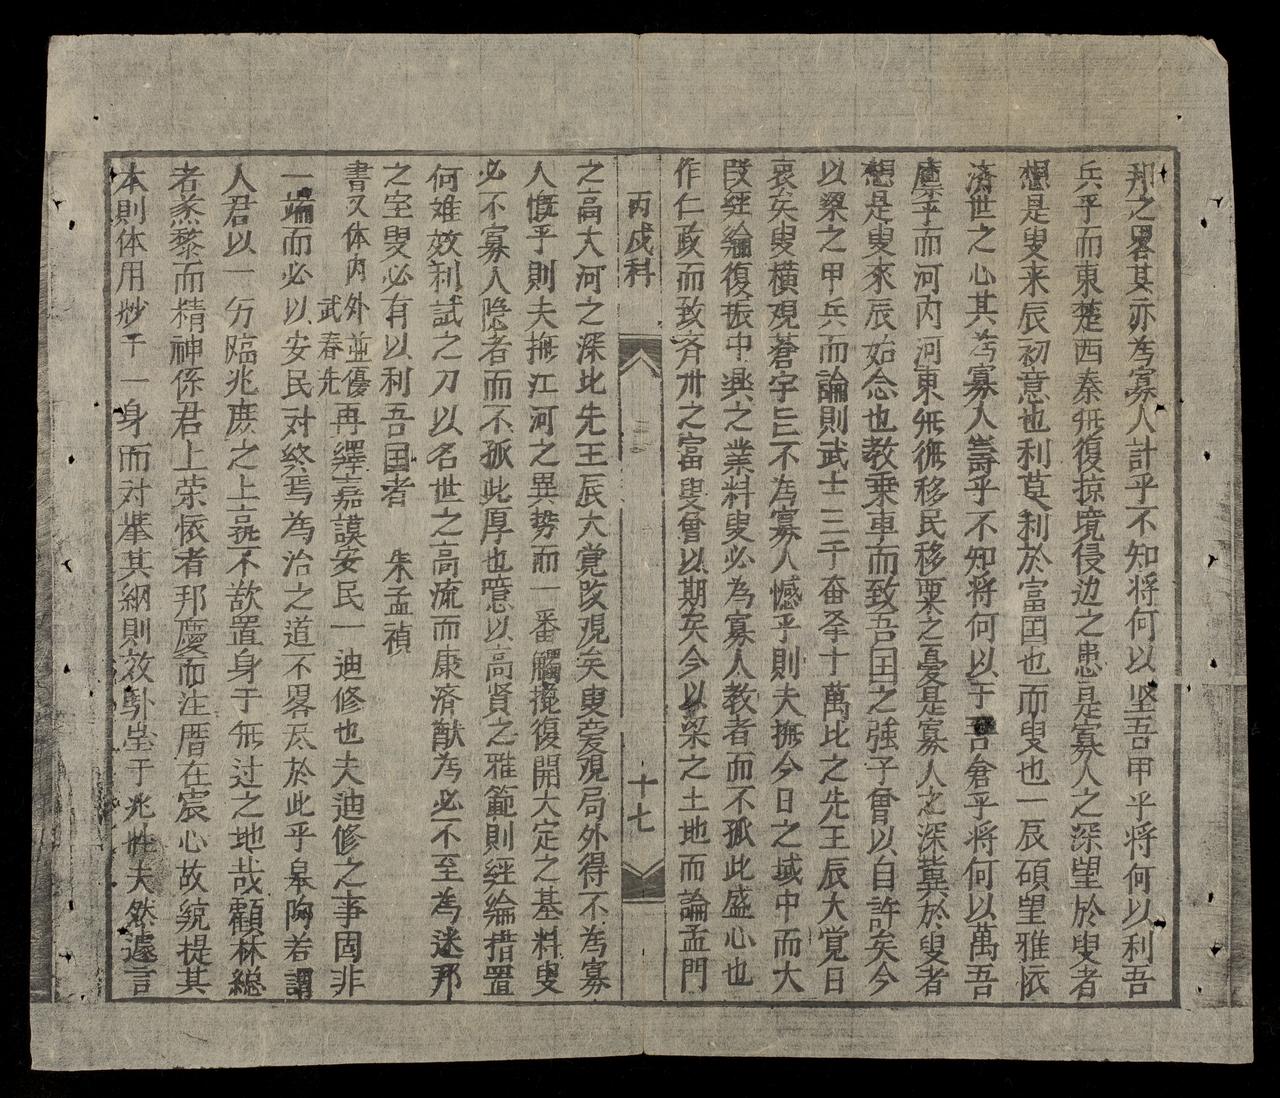 邦之畧其亦為寡人計乎不知将何以坚吾甲乎将何以利吾
兵乎而東楚西秦無復掠境侵边之患是寡人之深望於叟者
想是叟来辰初意也利莫利於富囯也而叟也一辰碩望雅依
済世之心其為寡人壽乎不知将何以于吾倉乎将何以萬吾
塵乎而河内河東無復移民移粟之憂是寡人之深冀於叟者
想是叟來辰始念也教乗車而致吾囯之強子曾以自許矣今
以梁之甲兵而論則武士三千奋拏十萬比之先王辰大覚日
哀矣叟横覌蒼宇旨不為寡人憾乎則夫撫今日之域中而大
叚経綸復振中興之業料叟必為寡人教者而不孤此盛心也
作仁政而致斉卅之富叟曾以期矣今以梁之土地而論孟門
丙戍科
十七
之高大河之深比先王辰大覚改覌矣叟爱覌局外得不為寡
人慨乎則夫撫江河之異势而一番觸擾復開大定之基料叟
必不寡人隐者而不孤此厚也噫以高贤之雅範則経綸措置
何难效利試之刀以名世之高流而康済猷為必不至為迷邦
之室叟必有以利吾囯者 朱孟禎
書又体内外並優武春先再繹嘉謨安民一迪修也夫迪修之事固非
一端而必以安民对終焉為治之道不畧尽於此乎皋陶若謂
人君以一方臨兆庶之上亮不敌置身于無过之地哉顧林総
者蒸黎而精神係君上荣依者邦慶而注厝在宸心故統提其
本則体用妙于一身而对挙其綱則效卦坐于兆姓夫然遽言